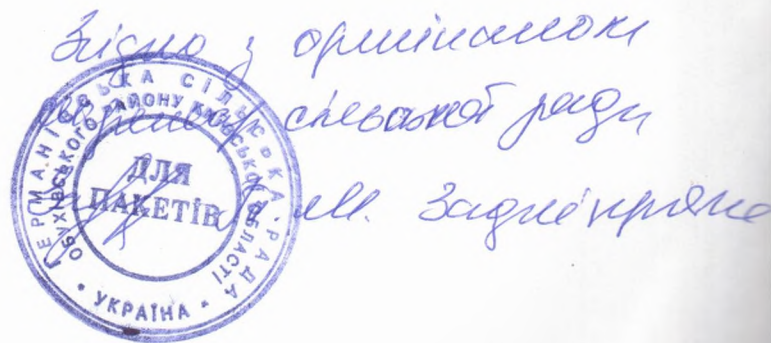 Згідно з оригіналом
сільської ради
М. Задніпряне
ГЕРМАНІВСЬКА СІЛЬСЬКА РАДА
ОБУХІВСЬКОГО РАЙОНУ КИЇВСЬКОЇ ОБЛАСТІ
• УКРАЇНА •
ДЛЯ
ПАКЕТІВ